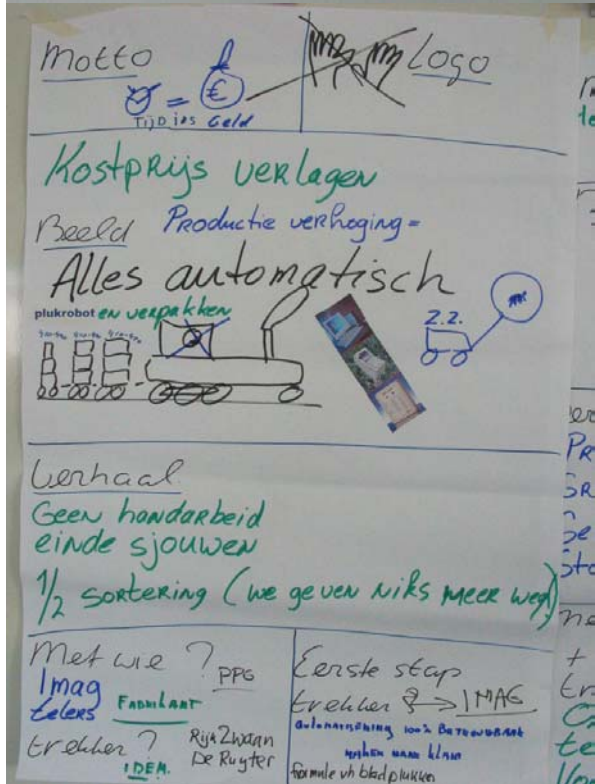 Motto
Logo
€
Tijd is Geld
Kostprijs verlagen
Beeld Productie verhoging =
Alles automatisch
plukrobot en verpakken
Z.Z.
Verhaal
Geen handarbeid
einde sjouwen
1/2 sortering (we geven niks meer weg)
Met wie? PPG
Imag
telers Fabrikant
trekker? Rijk Zwaan
De Ruyter
IDEM.
Eerste stap
trekker IMAG
automatisering 100% Betrouwbaar
maken naar klant
formule vh bladplukken